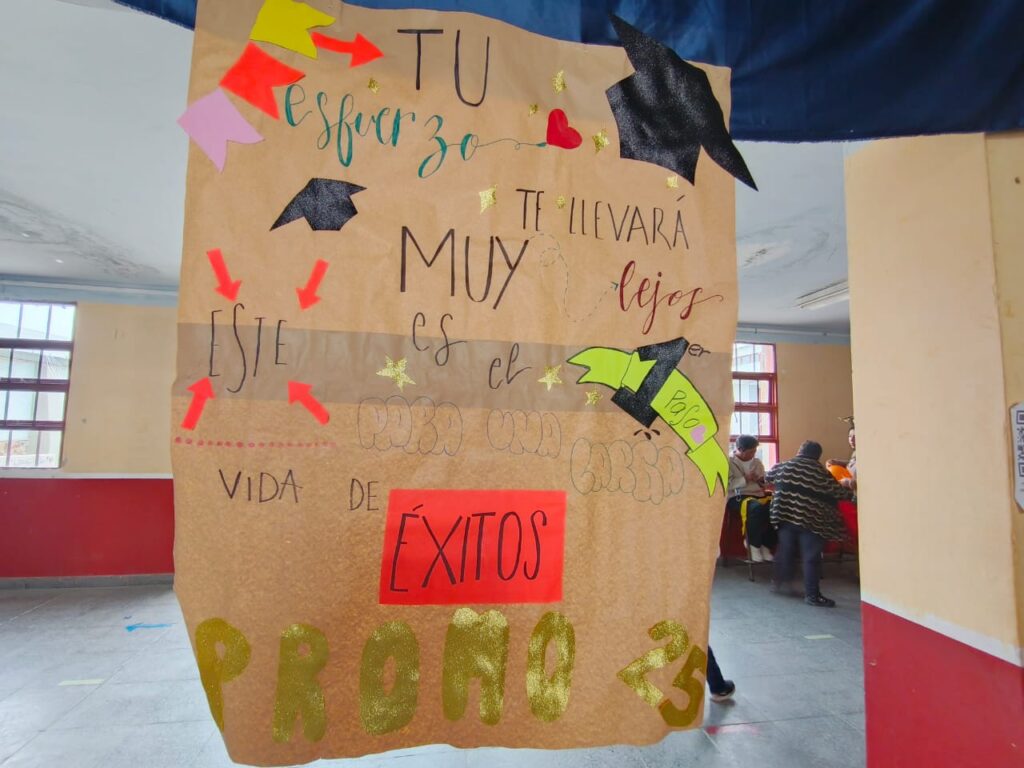 TU
esfuerzo
TE LLEVARÁ
MUY
lejos
ESTE es el 1er
Paso
PARA UNA LARGA
VIDA DE ÉXITOS
PROMO 25